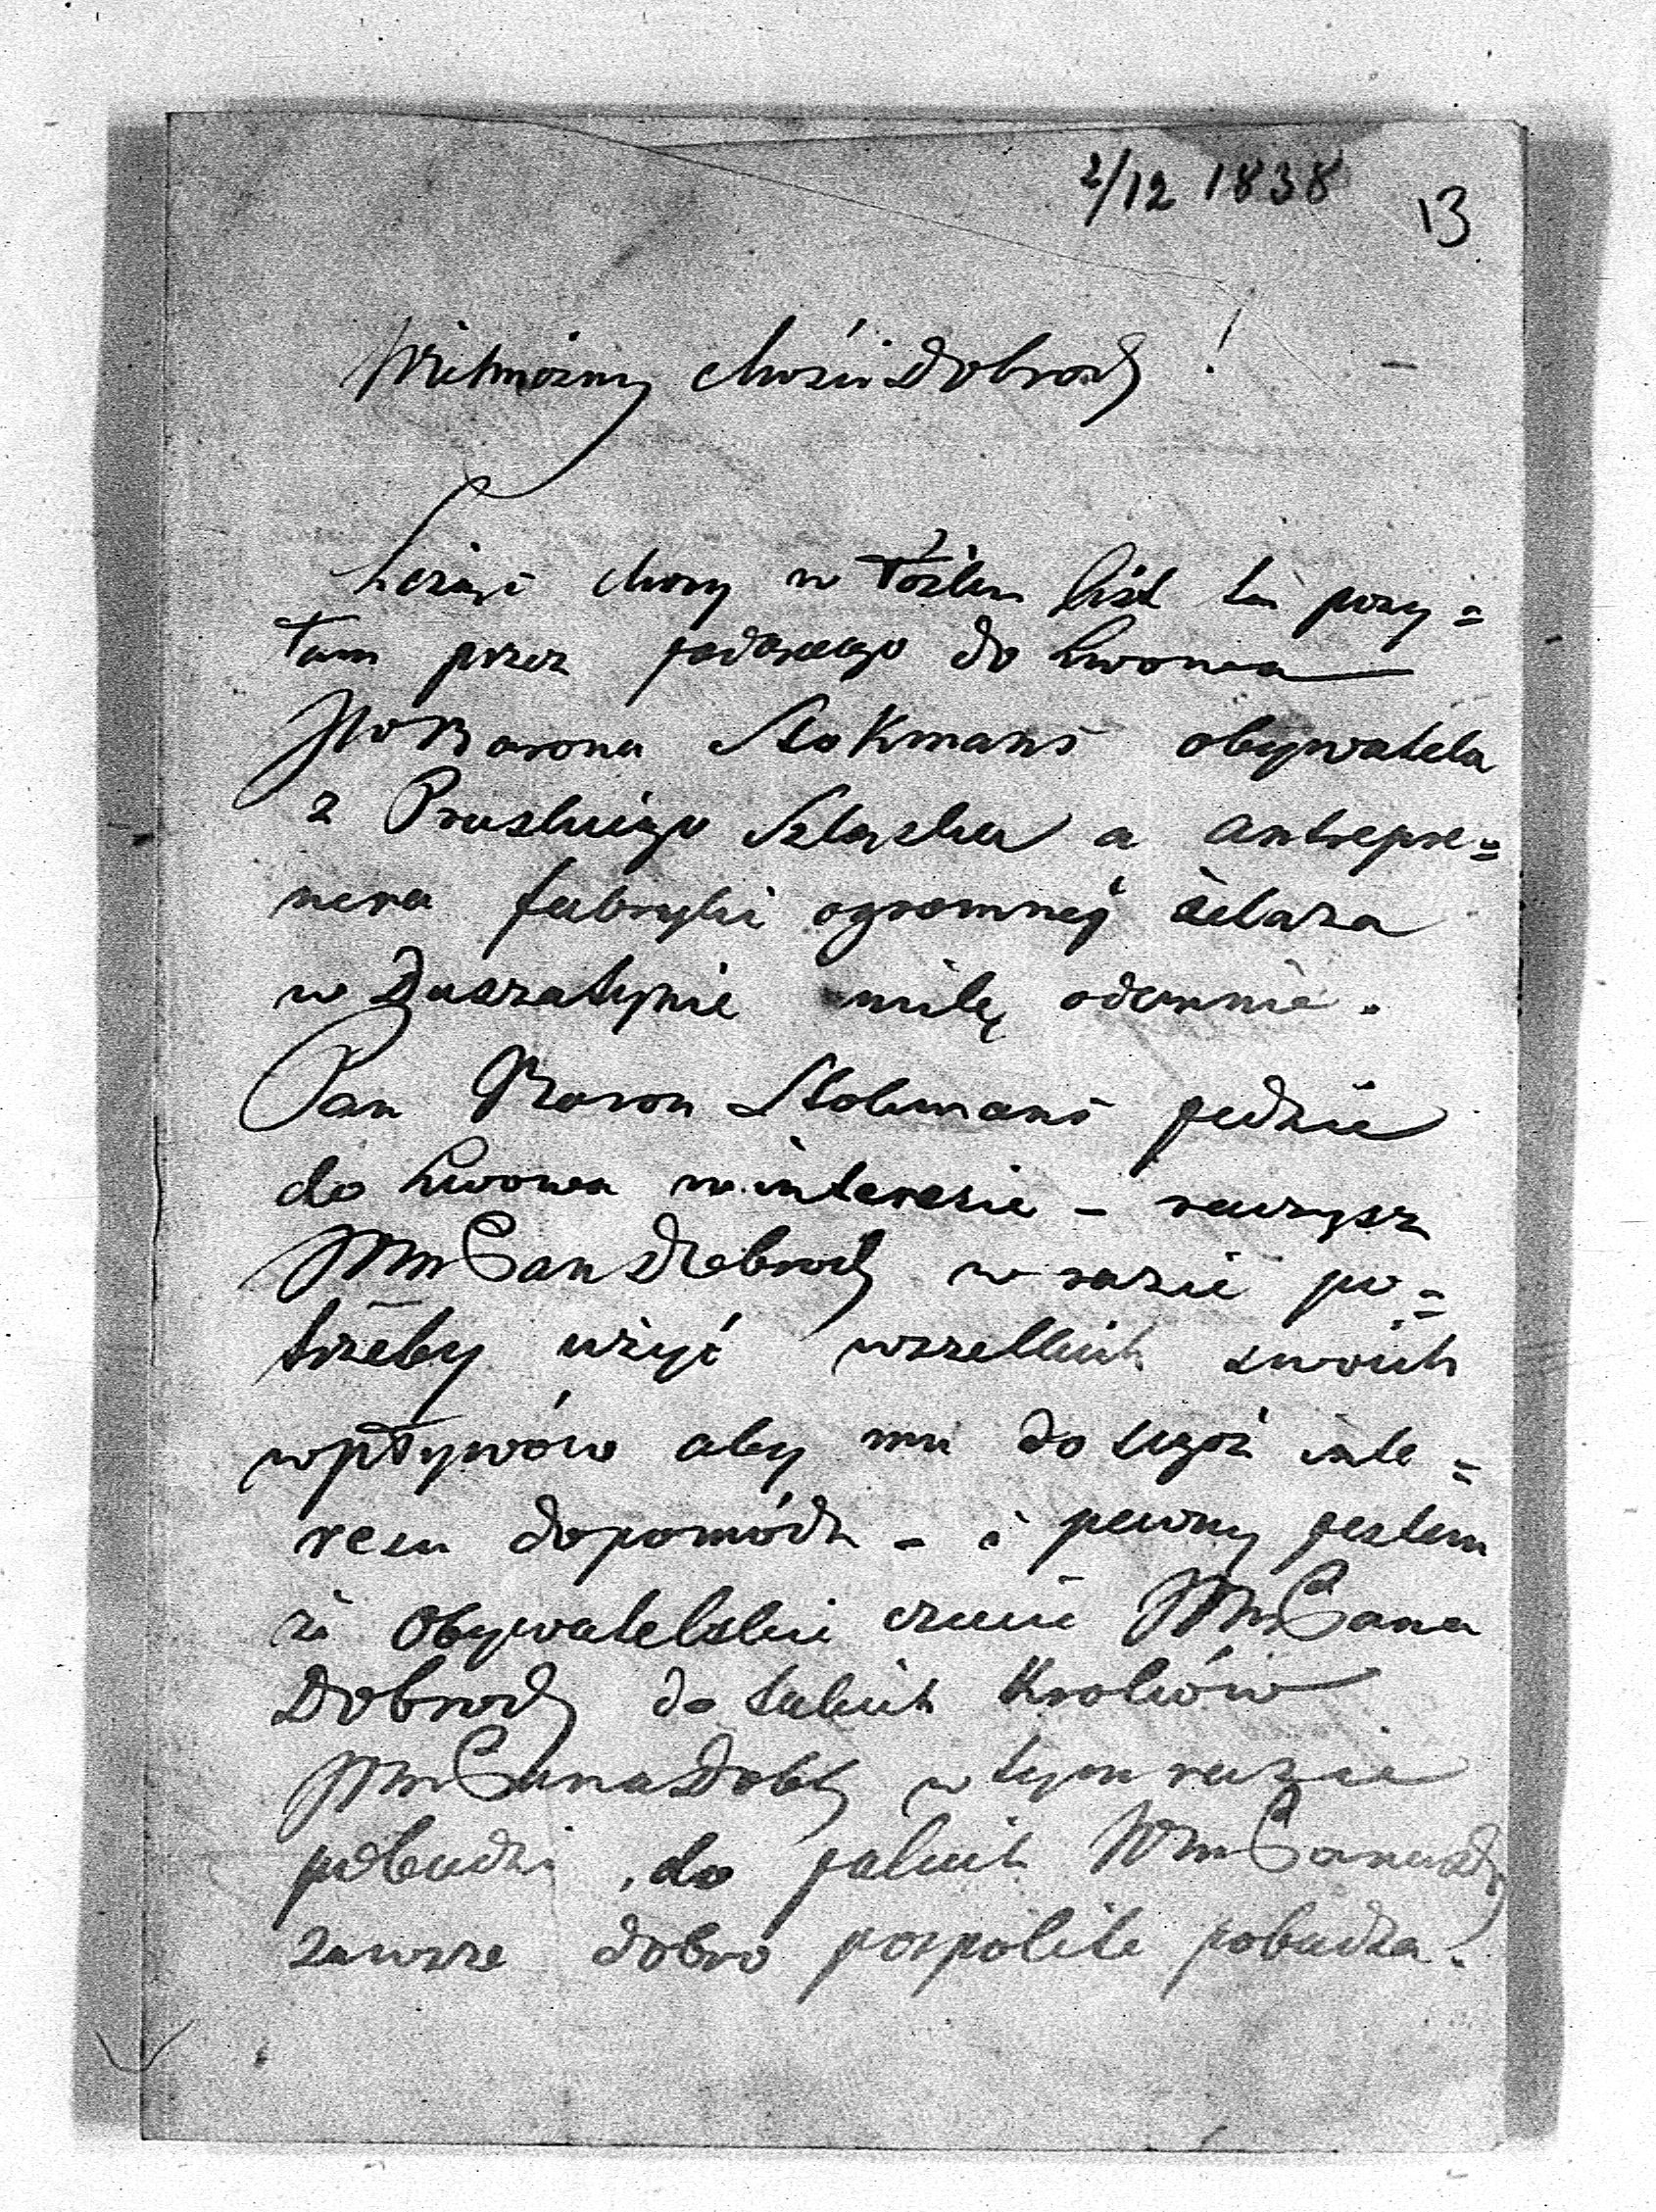 2/12 1838 13
Wielmożny Mości Dobrodz !
Leżąc chory w łóżku list ten posy=
łam przez jadącego do Lwowa
JW Barona Stokmans obywatela
z Pruskiego Szląska a antrepre=
nera fabryki ogromnej żelaza
w Duszatynie milę odemnie.
Pan Baron Stokmans jedzie
do Lwowa w interesie - raczysz
WmPan Dobrodz w razie po=
trzeby użyć wszelkich swoich
wpływów aby mu do tegoż inte=
resu dopomódz - i pewny jestem
że Obywatelskie czucie WmPana
Dobrodz do takich Kroków
WmPana Dobdz w tym razie
pobudzi, do jakich WmPana
zawsze dobro pospolite pobudza.